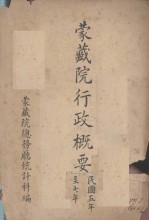 蒙藏院行政概要
民國五年
至七年
蒙藏院總務廳統計科編